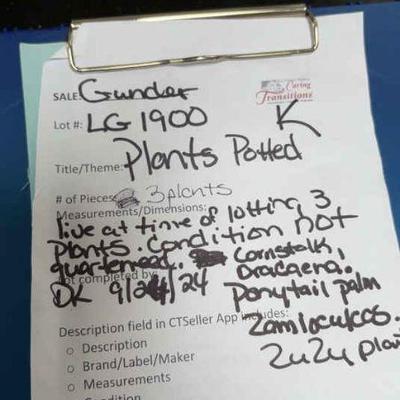 SALE: Gunder
Caring Transitions
Lot #: LG 1900 K
Title/Theme: Plants Potted
# of Pieces: 3 plants
Measurements/Dimensions:
live at time of lotting 3
plants. Condition not
Cornstalk,
Lot completed by
Dracaena.
DK 9/24/24 ponytail palm
Description field in CTSeller App includes:
o Description
zuzu plant
o Brand/Label/Maker
o Measurements
Condition